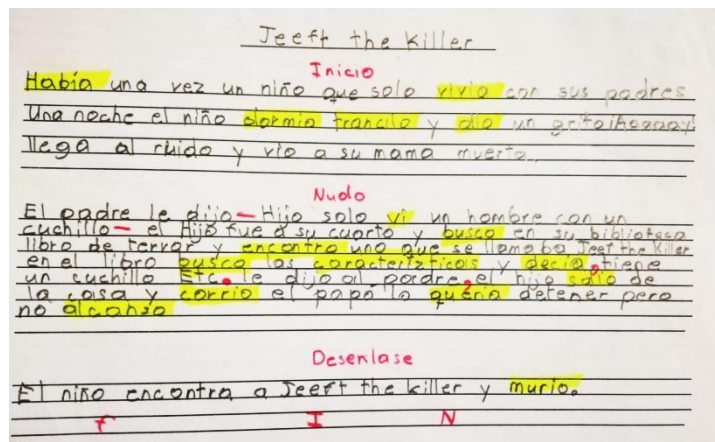 Jeeft the Killer
Inicio
Había una vez un niño que solo vivia con sus padres
Una noche el niño dormia trancilo y dio un grito¡Aaaaay!
llega al ruido y vio a su mama muerta.
Nudo
El padre le dijo-Hijo solo vi un hombre con un
cuchillo- el Hijo fue a su cuarto y busco en su biblioteca
libro de terror y encontro uno que se llamaba Jeef the Killer
en el libro busco las caracteristicos y decia, tiene
un cuchillo Etc. le dijo al padre, el hijo salo de
la casa y corrio el papá lo queria detener pero
no alcanso
Desenlase
El niño encontra a Jeeft the killer y murio.
F I N